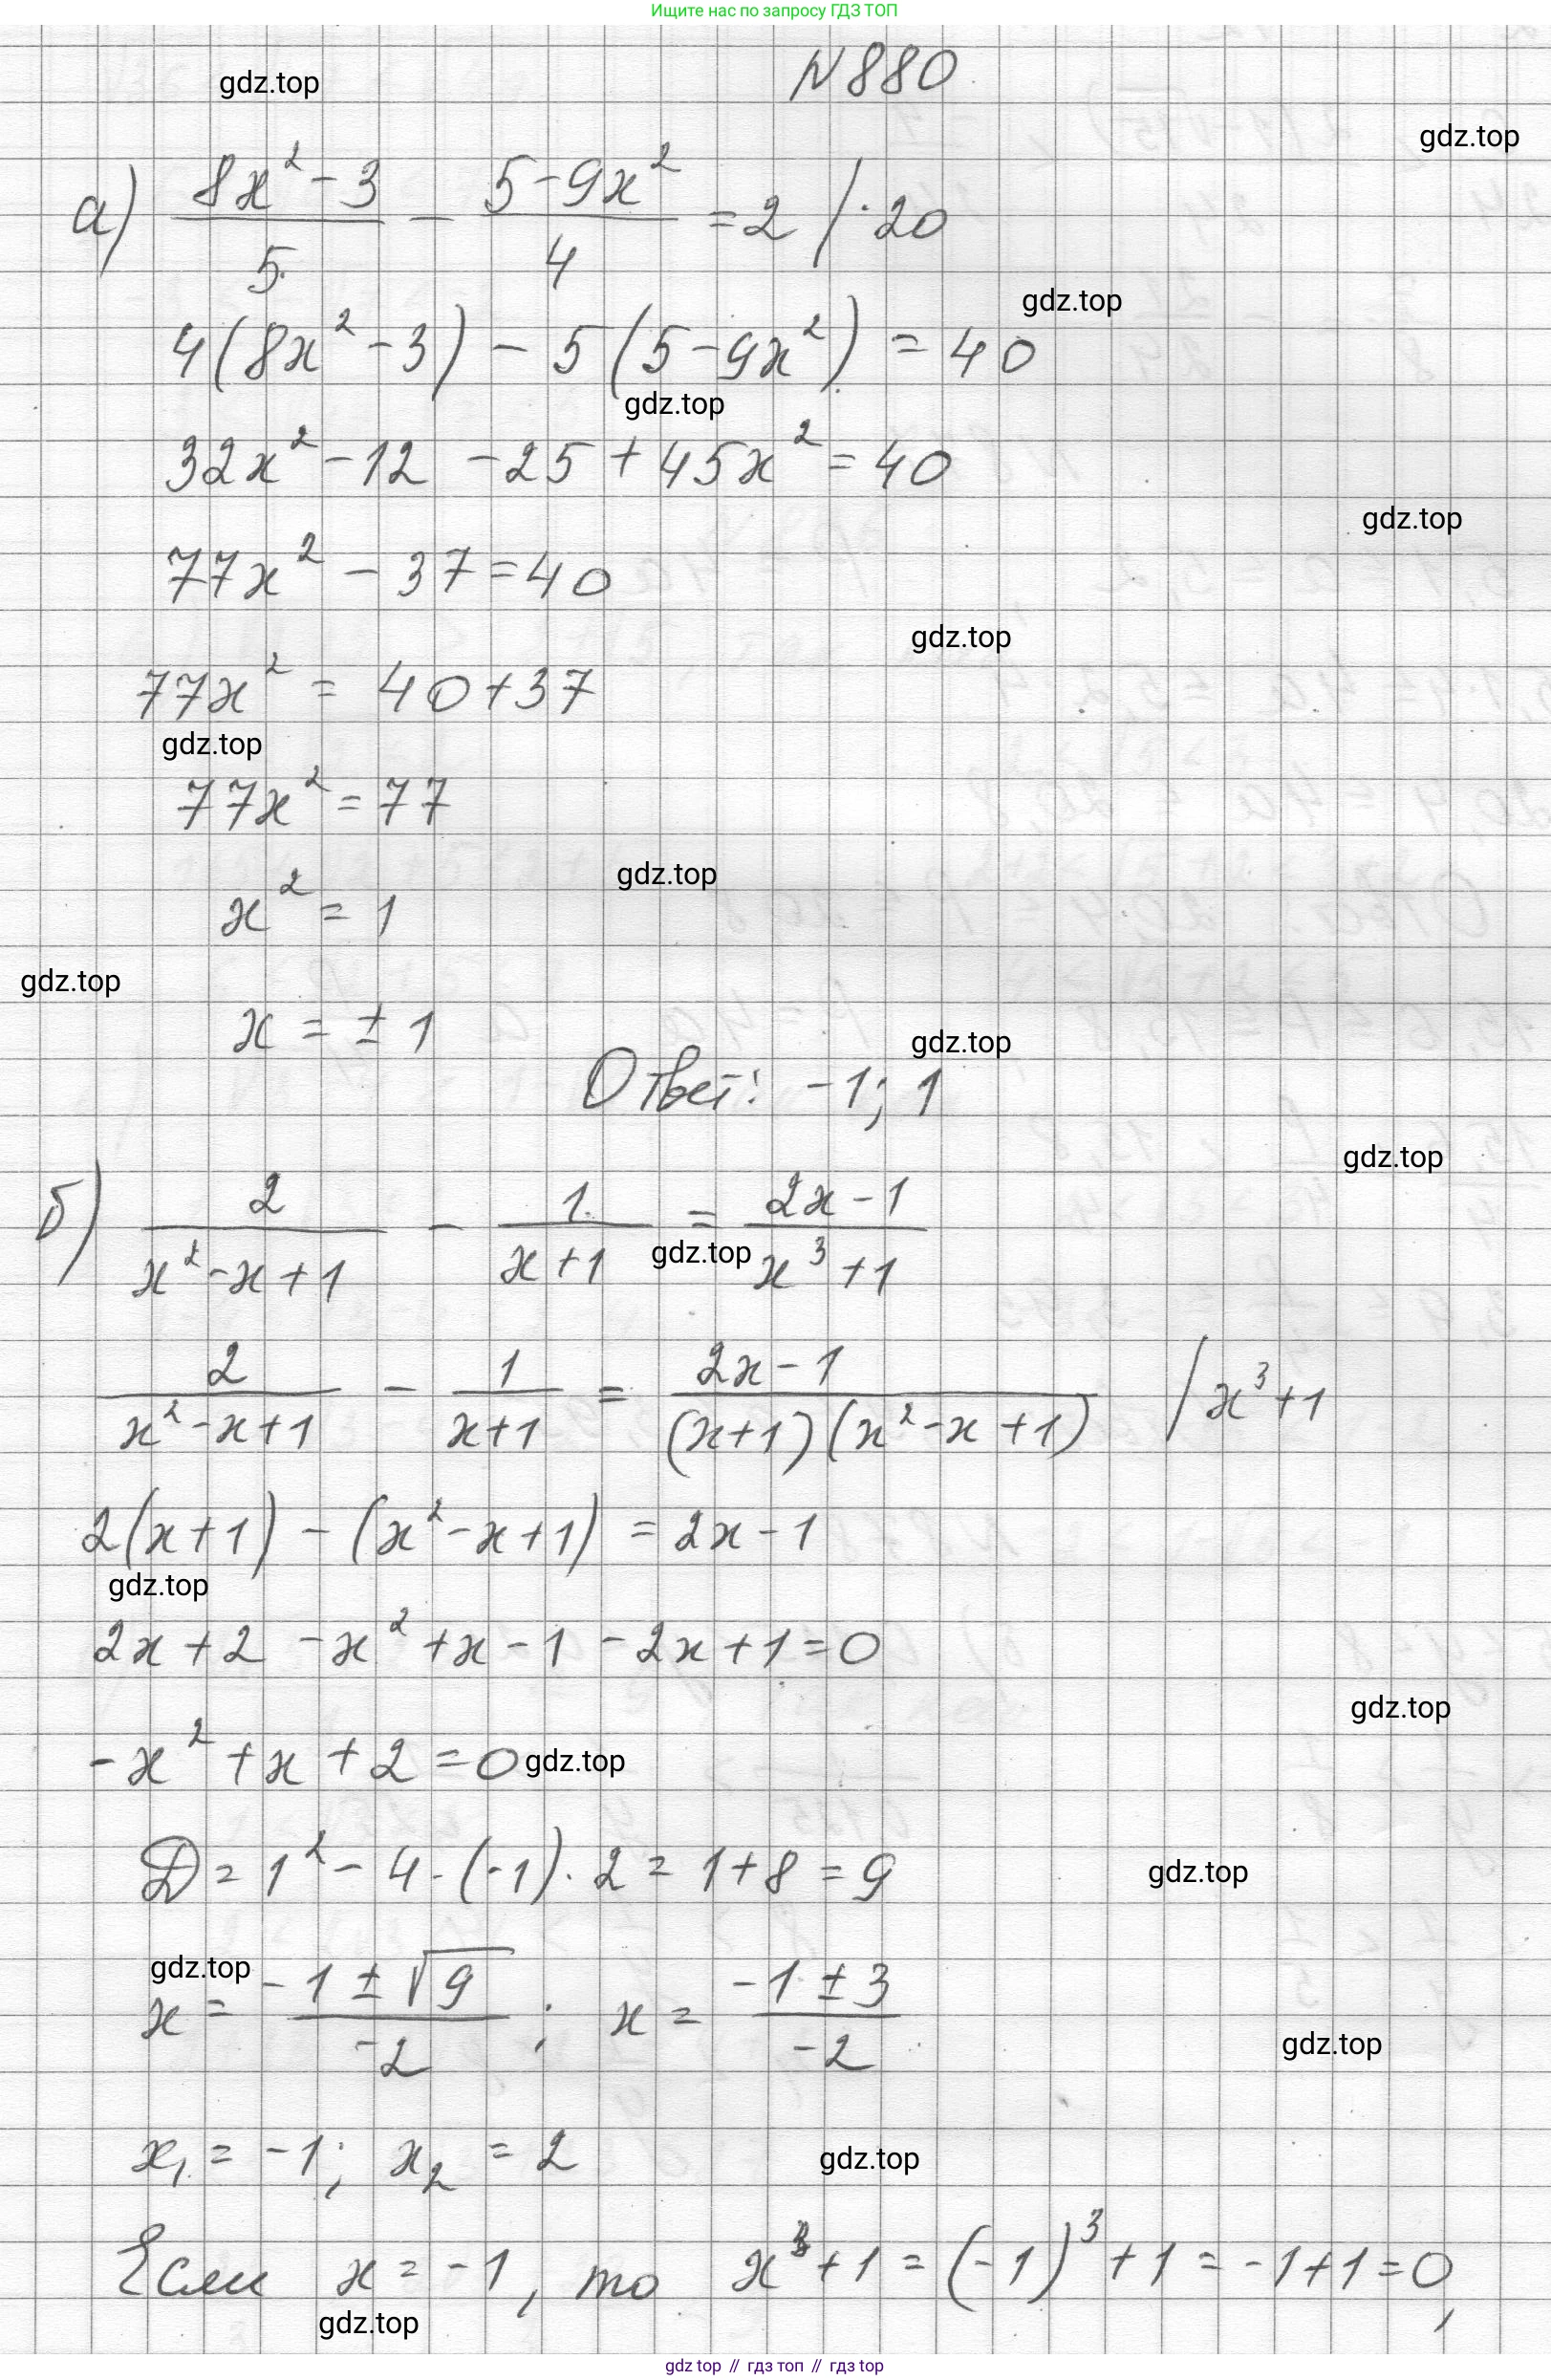 Ищите нас по запросу ГДЗ ТОП
N880
gdz.top
gdz.top
а) (8x² - 3)/5 - (5 - 9x²)/4 = 2 / · 20
gdz.top
4(8x² - 3) - 5(5 - 9x²) = 40
gdz.top
32x² - 12 - 25 + 45x² = 40
gdz.top
77x² - 37 = 40
gdz.top
77x² = 40 + 37
gdz.top
77x² = 77
gdz.top
x² = 1
gdz.top
x = ± 1
gdz.top
Ответ: -1; 1
gdz.top
б) 2/(x² - x + 1) - 1/(x + 1) = (2x - 1)/(x³ + 1)
gdz.top
2/(x² - x + 1) - 1/(x + 1) = (2x - 1)/((x + 1)(x² - x + 1)) / x³ + 1
2(x + 1) - (x² - x + 1) = 2x - 1
gdz.top
2x + 2 - x² + x - 1 - 2x + 1 = 0
gdz.top
-x² + x + 2 = 0
gdz.top
D = 1² - 4 · (-1) · 2 = 1 + 8 = 9
gdz.top
gdz.top
x = (-1 ± √9)/(-2) ; x = (-1 ± 3)/(-2)
gdz.top
x₁ = -1; x₂ = 2
gdz.top
Если x = -1, то x³ + 1 = (-1)³ + 1 = -1 + 1 = 0,
gdz.top
gdz top // гдз топ // gdz top